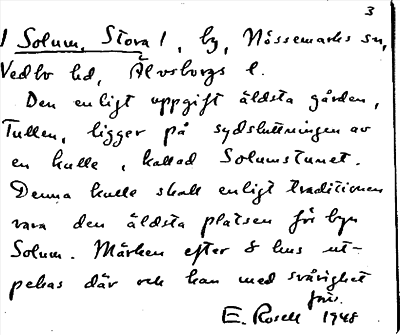 3
/ Solum, Stora /, by, Nössemarks sn,
Vedbo hd, Älvsborgs l.
Den enligt uppgift äldsta gården,
Tullen, ligger på sydsluttningen av
en kulle, kallad Solumstunet.
Denna kulle skall enligt traditionen
vara den äldsta platsen för byn
Solum. Märken efter 8 hus ut-
pekas där och kan med svårighet
E. Rosell 1948